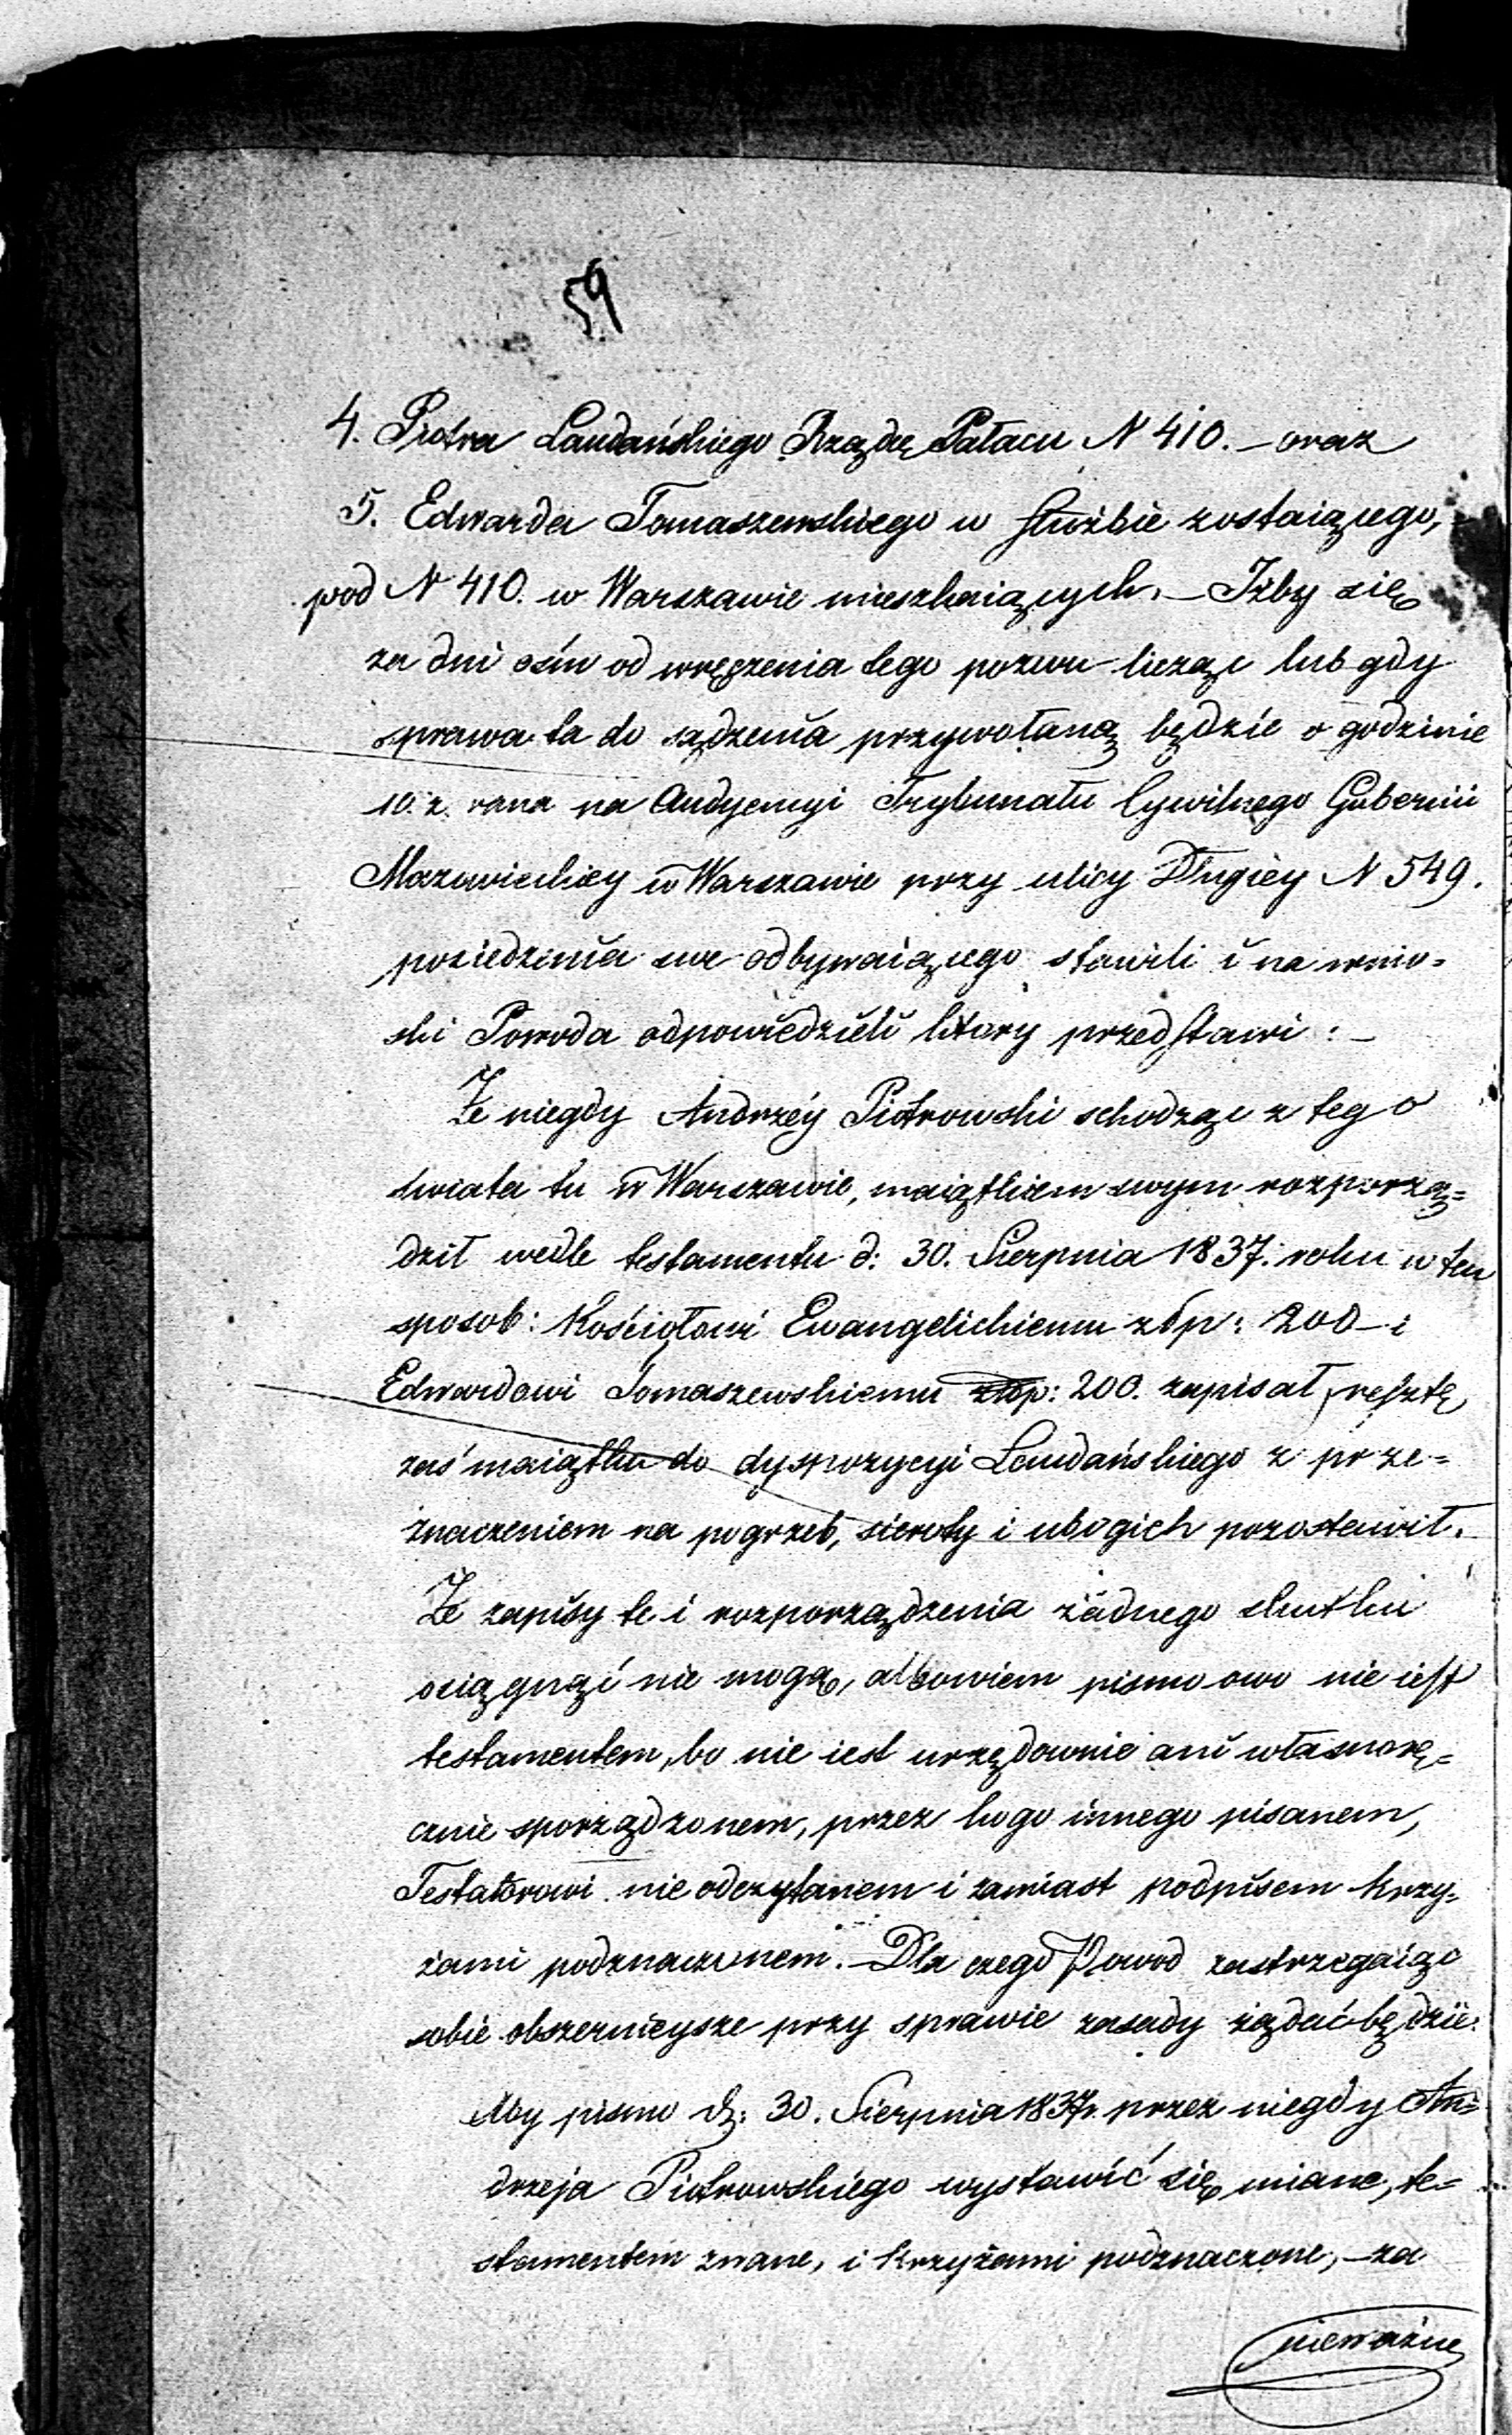 59
4. Piotra Laudańskiego Rządzę Pałacu N 410. – oraz
5. Edwarda Tomaszewskiego w służbie zostaiącego,
pod N 410. w Warszawie mieszkaiących. – Iżby się
za dni ośm od wręczenia tego pozwu licząc lub gdy
sprawa ta do sądzenia przywołaną będzie o godzinie
10. z rana na Audyencyi Trybunału Cywilnego Gubernii
Mazowieckiey w Warszawie przy ulicy Długiéy N 549.
posiedzenia swe odbywaiącego stawili i na wnio=
ski Powoda odpowiedzieli który przedstawi: –
Że niegdy Andrzéy Piotrowski schodząc z tego
świata tu w Warszawie, maiątkiem swym rozporzą=
dził wedle testamentu d: 30. Sierpnia 1837. roku w ten
sposob: Kościołowi Ewangelickiemu złp: 200 – i
Edwardowi Tomaszewskiemu złp: 200. zapisał, resztę
zaś maiątku do dyspozycyi Laudańskiego z prze=
znaczeniem na pogrzeb, sieroty i ubogich pozostawił.
Że zapisy te i rozporządzenia żadnego skutku
osiągnąć nie mogą, albowiem pismo owo nie iest
testamentem, bo nie iest urzędownie ani własnorę=
cznie sporządzonem, przez kogo innego pisanem,
Testatorowi nie odczytanem i zamiast podpisem krzy=
żami podznaczonem. – Dla czego Powod zastrzegaiąc
sobie obszernieysze przy sprawie zasady żądać będzie:
Aby pismo d: 30. Sierpnia 1837r. przez niegdy An=
drzeja Piotrowskiego wystawić się miane, te=
stamentem zwane, i krzyżami podznaczone, – za
nieważne